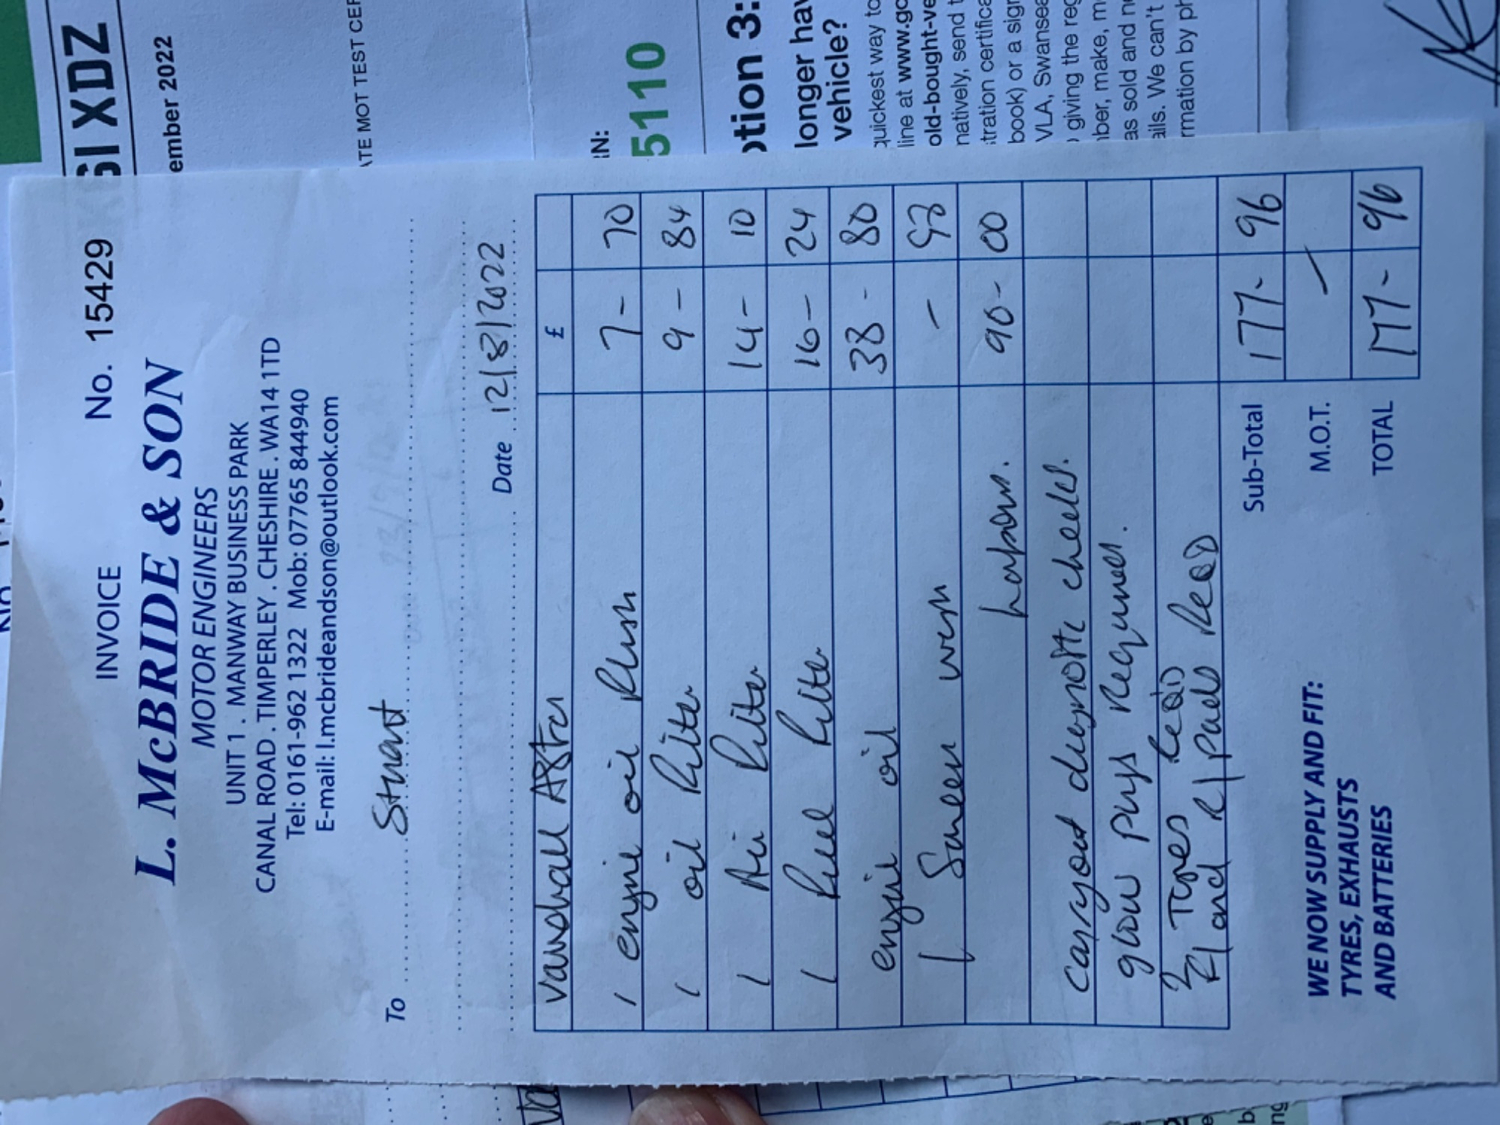 SI XDZ
ember 2022
ATE MOT TEST CER
5110
ption 3:
longer hav
vehicle?
quickest way to
line at www.go
old-bought-ve
natively, send t
tration certifica
book) or a sign
VLA, Swansea
giving the reg
ber, make, m
as sold and n
ails. We can't
rmation by ph
INVOICE No. 15429
L. McBRIDE & SON
MOTOR ENGINEERS
UNIT 1 . MANWAY BUSINESS PARK
CANAL ROAD . TIMPERLEY . CHESHIRE . WA14 1TD
Tel: 0161-962 1322 Mob: 07765 844940
E-mail: l.mcbrideandson@outlook.com
To Stuart
Date 12/8/2022
Vauxhall Astra £
1 engine oil Flush 7 - 70
1 oil Filter 9 - 84
1 Air Filter 14 - 10
1 Fuel Filter 16 - 24
engine oil 38 - 80
1 Screen wash -
Labour. 90 - 00
carryout diagnostic checks.
glow plugs Required.
2 Tyres REQD
and pads REQD
Sub-Total 177 - 96
M.O.T. -
TOTAL 177 - 96
WE NOW SUPPLY AND FIT:
TYRES, EXHAUSTS
AND BATTERIES